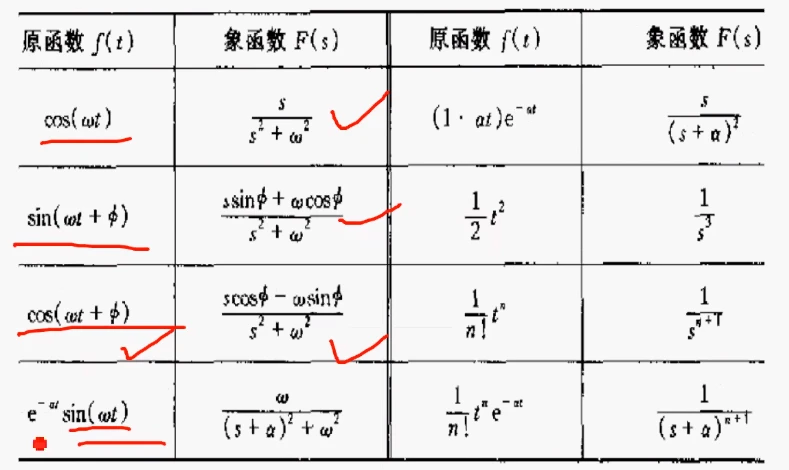 原函数 f(t) 象函数 F(s) 原函数 f(t) 象函数 F(s)
cos(ωt) s/(s²+ω²) (1·αt)e^(-αt) s/(s+α)²
sin(ωt+ϕ) (s sinϕ+ω cosϕ)/(s²+ω²) 1/2 t² 1/s³
cos(ωt+ϕ) (s cosϕ-ω sinϕ)/(s²+ω²) 1/n! tⁿ 1/s^(n+1)
e^(-αt) sin(ωt) ω/((s+α)²+ω²) 1/n! tⁿ e^(-αt) 1/(s+α)^(n+1)